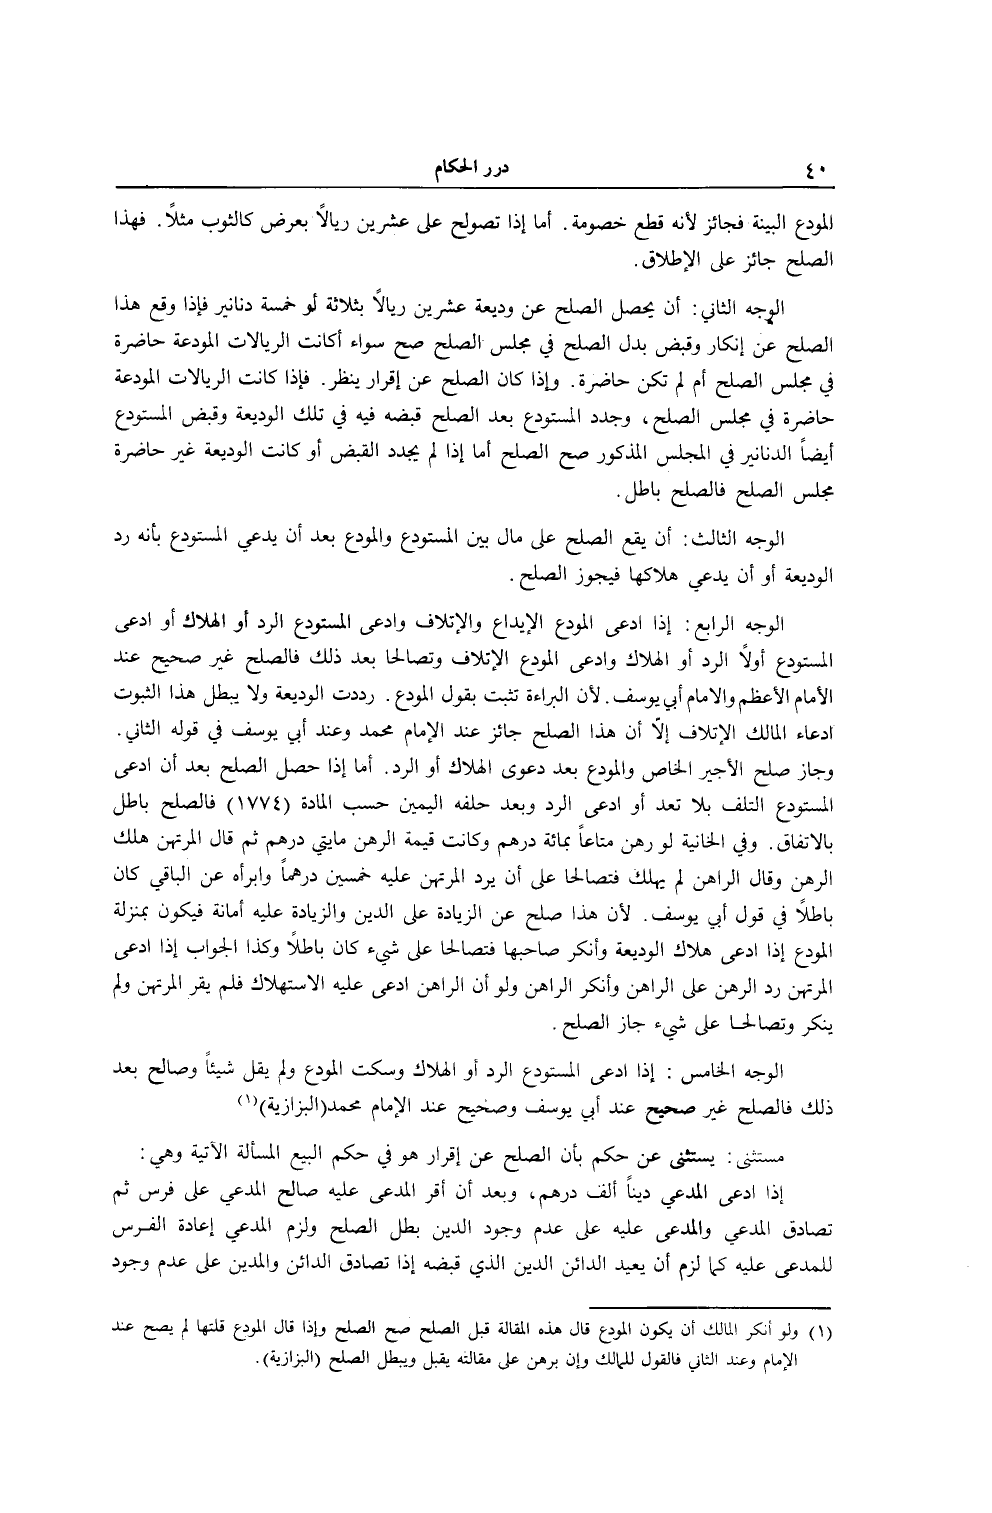 ٤٠ درر الحكام
المودع البينة فجائز لأنه قطع خصومة. أما إذا تصولح على عشرين ريالاً بعرض كالثوب مثلاً. فهذا
الصلح جائز على الإطلاق.
الوجه الثاني: أن يحصل الصلح عن وديعة عشرين ريالاً بثلاثة لو خمسة دنانير فإذا وقع هذا
الصلح عن إنكار وقبض بدل الصلح في مجلس الصلح صح سواء أكانت الريالات المودعة حاضرة
في مجلس الصلح أم لم تكن حاضرة. وإذا كان الصلح عن إقرار ينظر. فإذا كانت الريالات المودعة
حاضرة في مجلس الصلح، وجدد المستودع بعد الصلح قبضه فيه في تلك الوديعة وقبض المستودع
أيضاً الدنانير في المجلس المذكور صح الصلح أما إذا لم يجدد القبض أو كانت الوديعة غير حاضرة
مجلس الصلح فالصلح باطل.
الوجه الثالث: أن يقع الصلح على مال بين المستودع والمودع بعد أن يدعي المستودع بأنه رد
الوديعة أو أن يدعي هلاكها فيجوز الصلح.
الوجه الرابع: إذا ادعى المودع الإيداع والإتلاف وادعى المستودع الرد أو الهلاك أو ادعى
المستودع أولاً الرد أو الهلاك وادعى المودع الإتلاف وتصالحا بعد ذلك فالصلح غير صحيح عند
الأمام الأعظم والامام أبي يوسف. لأن البراءة تثبت بقول المودع. رددت الوديعة ولا يبطل هذا الثبوت
ادعاء المالك الإتلاف إلاّ أن هذا الصلح جائز عند الإمام محمد وعند أبي يوسف في قوله الثاني.
وجاز صلح الأجير الخاص والمودع بعد دعوى الهلاك أو الرد. أما إذا حصل الصلح بعد أن ادعى
المستودع التلف بلا تعد أو ادعى الرد وبعد حلفه اليمين حسب المادة (١٧٧٤) فالصلح باطل
بالاتفاق. وفي الخانية لو رهن متاعاً بمائة درهم وكانت قيمة الرهن مايتي درهم ثم قال المرتهن هلك
الرهن وقال الراهن لم يهلك فتصالحا على أن يرد المرتهن عليه خمسين درهماً وابرأه عن الباقي كان
باطلاً في قول أبي يوسف. لأن هذا صلح عن الزيادة على الدين والزيادة عليه أمانة فيكون بمنزلة
المودع إذا ادعى هلاك الوديعة وأنكر صاحبها فتصالحا على شيء كان باطلاً وكذا الجواب إذا ادعى
المرتهن رد الرهن على الراهن وأنكر الراهن ولو أن الراهن ادعى عليه الاستهلاك فلم يقر المرتهن ولم
ينكر وتصالحا على شيء جاز الصلح.
الوجه الخامس : إذا ادعى المستودع الرد أو الهلاك وسكت المودع ولم يقل شيئاً وصالح بعد
ذلك فالصلح غير صحيح عند أبي يوسف وصحيح عند الإمام محمد(البزازية)(١)
مستثنى: يستثنى عن حكم بأن الصلح عن إقرار هو في حكم البيع المسألة الآتية وهي:
إذا ادعى المدعي ديناً ألف درهم، وبعد أن أقر المدعى عليه صالح المدعي على فرس ثم
تصادق المدعي والمدعى عليه على عدم وجود الدين بطل الصلح ولزم المدعي إعادة الفرس
للمدعى عليه كما لزم أن يعيد الدائن الدين الذي قبضه إذا تصادق الدائن والمدين على عدم وجود
(١) ولو أنكر المالك أن يكون المودع قال هذه المقالة قبل الصلح صح الصلح وإذا قال المودع قلتها لم يصح عند
الإمام وعند الثاني فالقول للمالك وإن برهن على مقالته يقبل ويبطل الصلح (البزازية).